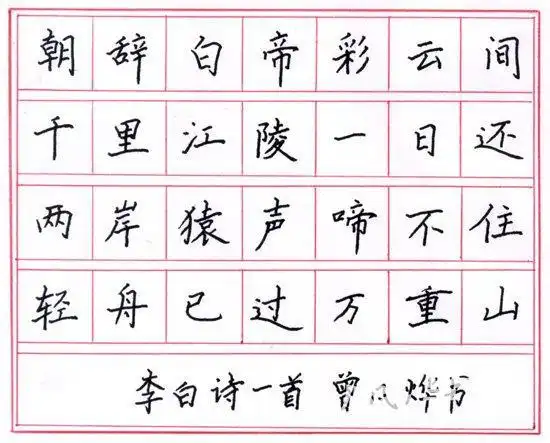 朝辞白帝彩云间
千里江陵一日还
两岸猿声啼不住
轻舟已过万重山
李白诗一首 曾 烨书